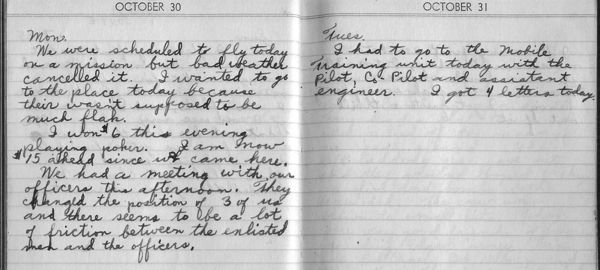 OCTOBER 30
Mon.
We were scheduled to fly today
on a mission but bad weather
cancelled it. I wanted to go
to the place today because
their wasn't supposed to be
much flak.
I won $6 this evening
playing poker. I am now
$15 ahead since we came here.
We had a meeting with our
officers this afternoon. They
changed the position of 3 of us
and there seems to be a lot
of friction between the enlisted
men and the officers.
OCTOBER 31
Tues.
I had to go to the Mobile
Training unit today with the
Pilot, Co Pilot and assistant
engineer. I got 4 letters today.